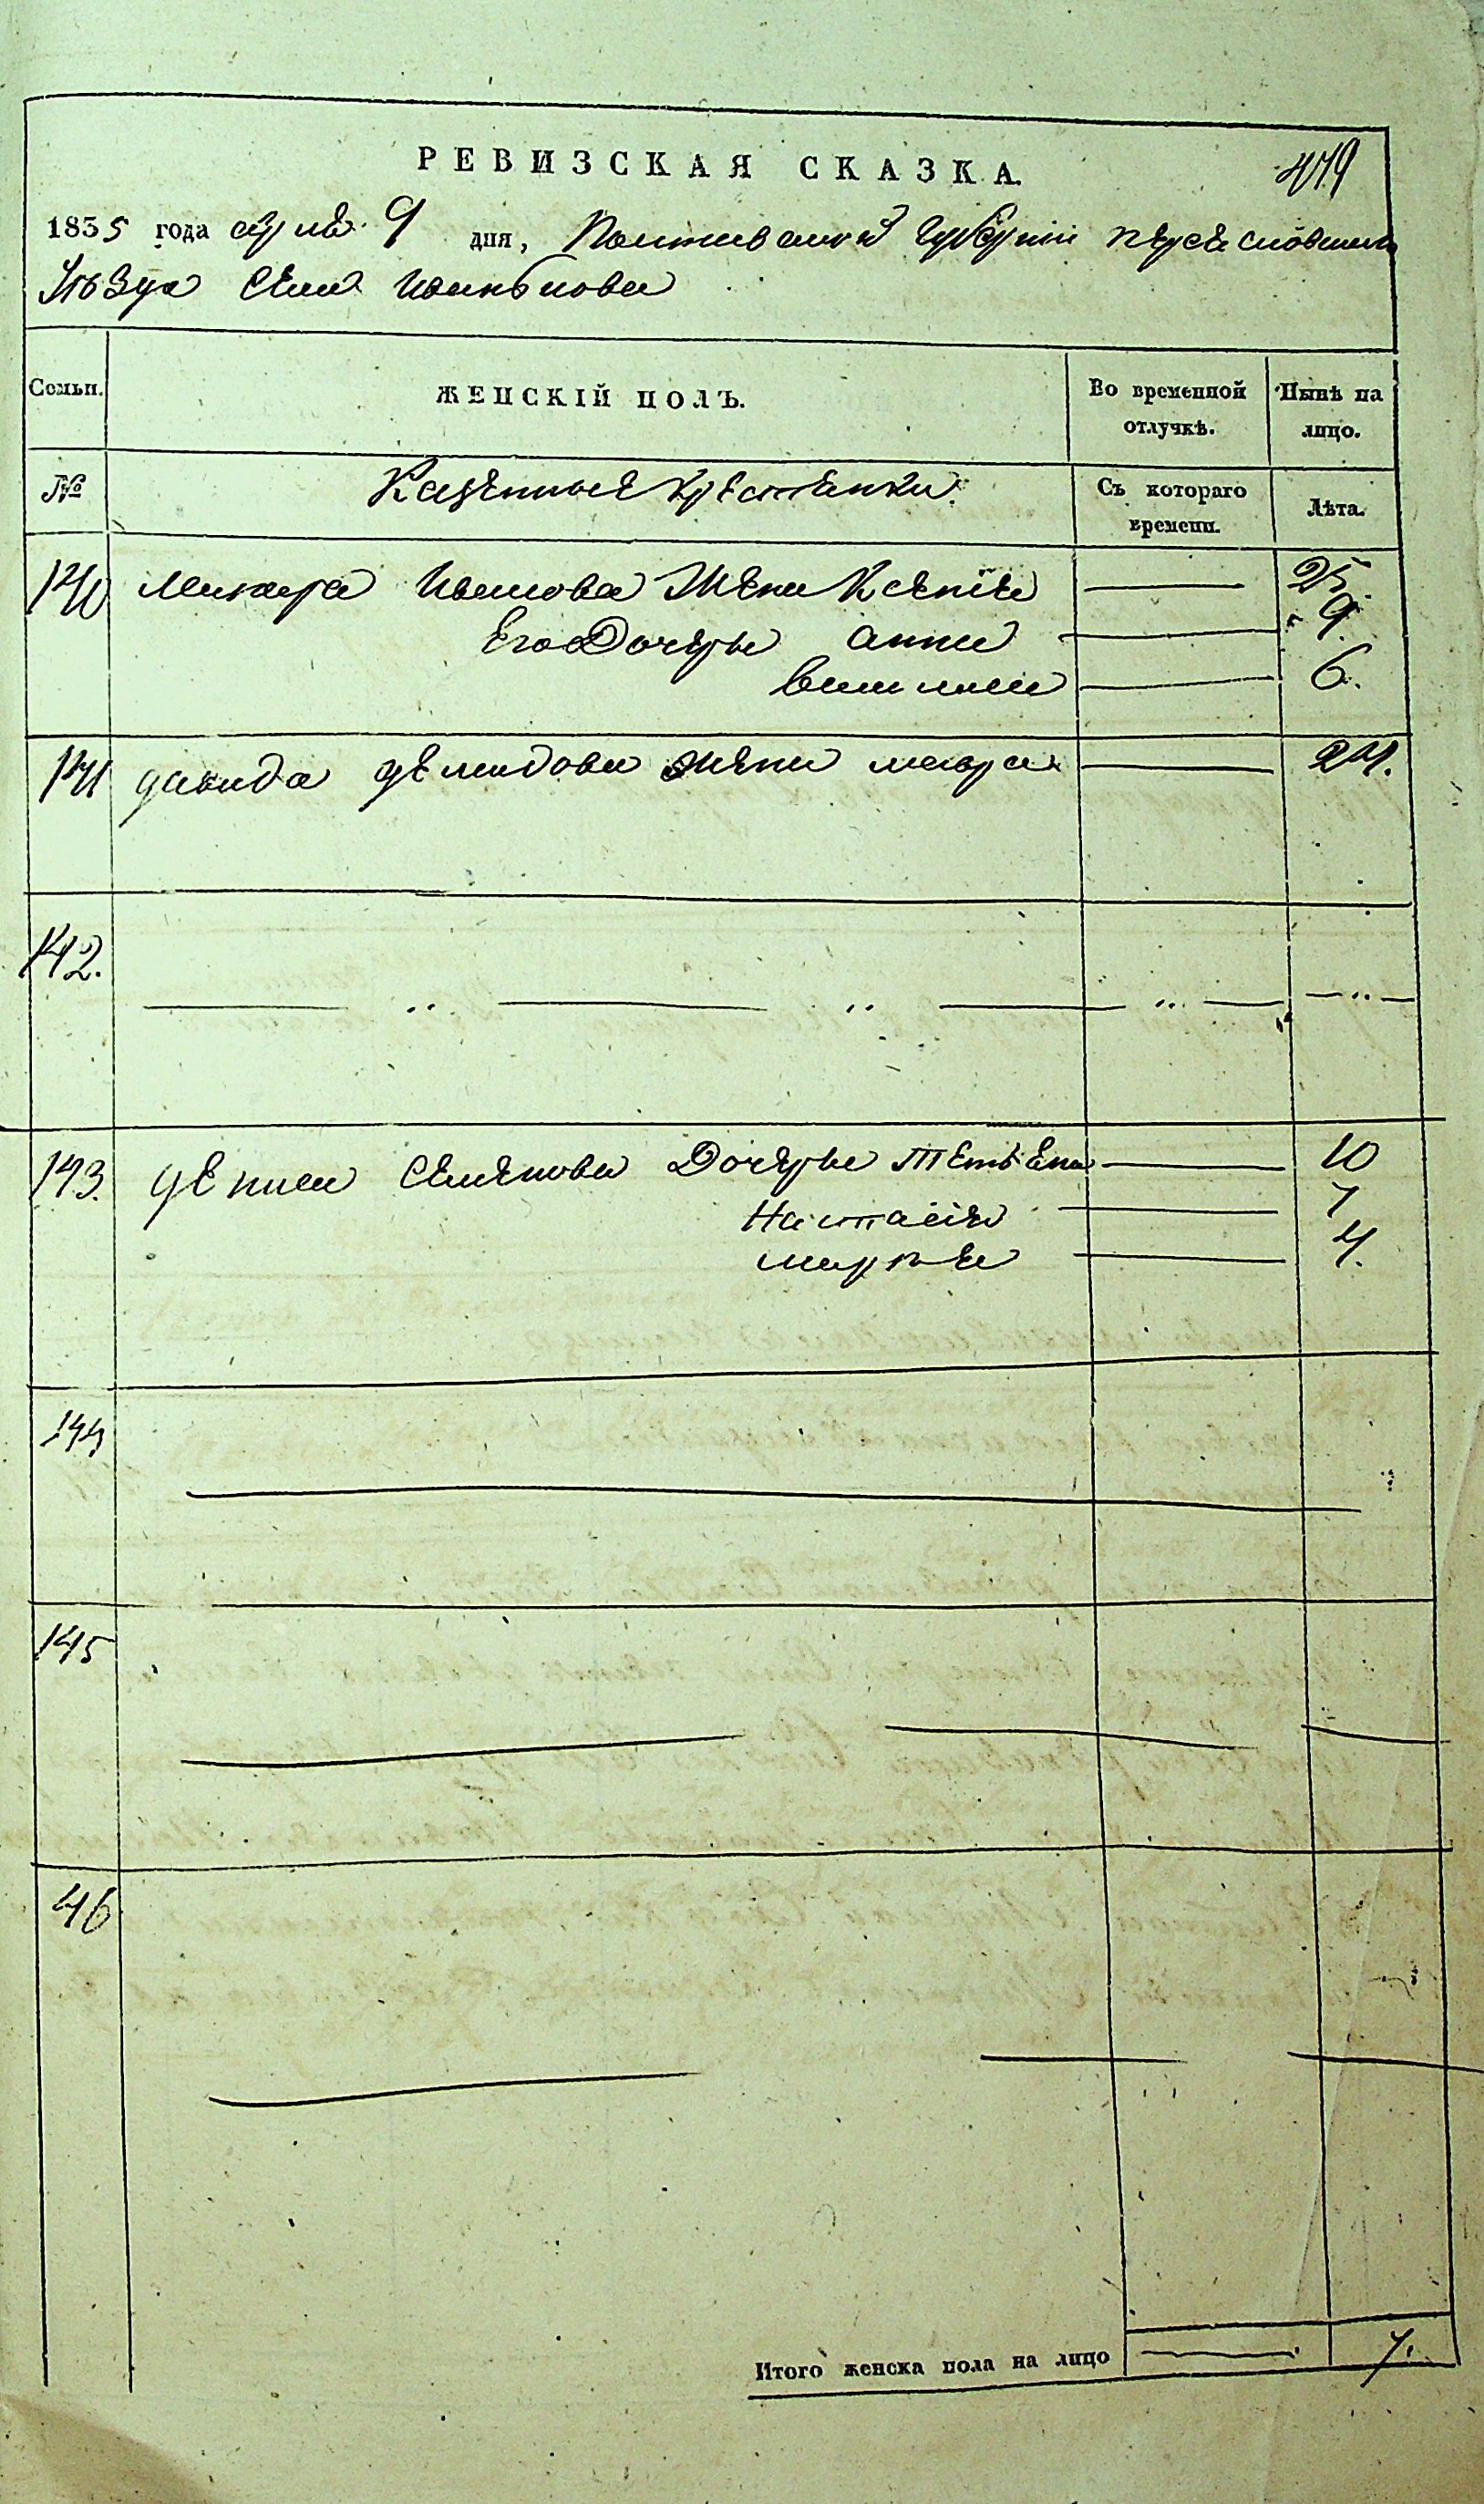 РЕВИЗСКАЯ СКАЗКА.
419
1835 года апреля 9 дня, Полтавской Губернии переяславскаго
Уѣзда Села Иваньkова
Семьи.
ЖЕНСКІЙ ПОЛЪ.
Во временной отлучкѣ.
Нынѣ на лицо.
№
Казенные крестьянки.
Съ котораго времени.
Лѣта.
140 макара Иванова Жена Ксенія — 25
Его Дочери анна — 9.
6.
141 давида демидова жена мавра — 24.
142. — „ — „ — „ — — „ —
143. дениса Семенова Дочери Тетьена — 10
Настасія — 7
марья — 4.
144
145
46
Итого женска пола на лицо — 7.